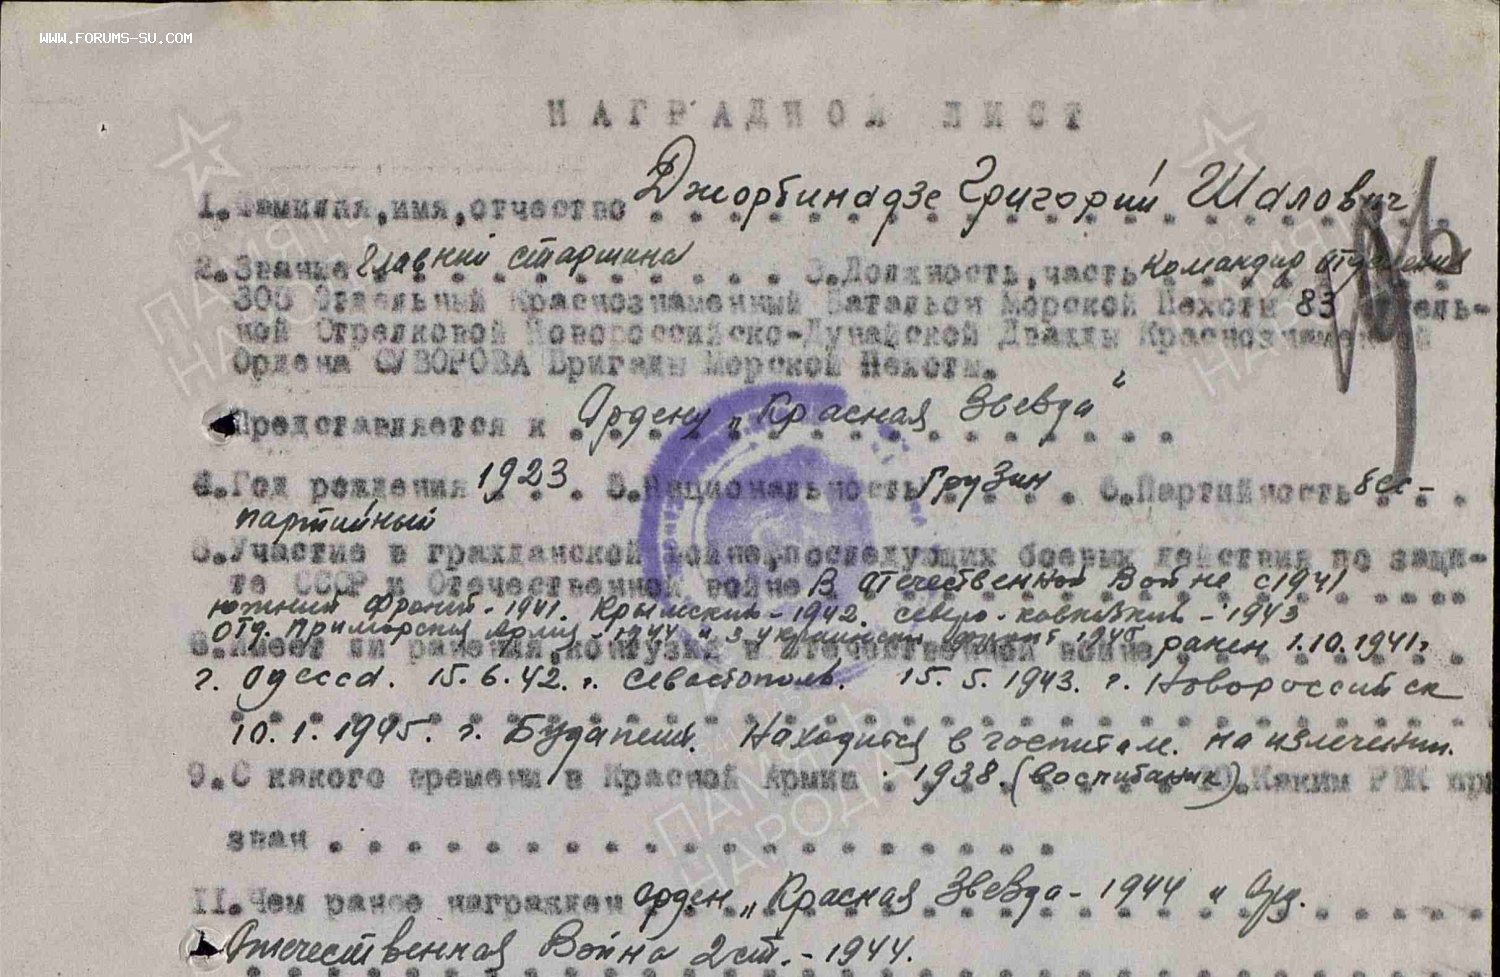 WWW.FORUMS-SU.COM
НАГРАДНОЙ ЛИСТ
1. Фамилия, имя, отчество Джорбинадзе Григорий Шалович
2. Звание Главний старшина 3. Должность, часть командир отделения
305 Отдельный Краснознаменный Батальон Морской Пехоты 83 отдель-
ной Стрелковой Новороссийско-Дунайской Дважды Краснознаменной
Ордена СУВОРОВА Бригады Морской Пехоты.
Представляется к Ордену "Красная Звезда"
4. Год рождения 1923 5. Национальность Грузин 6. Партийность бес-
партийный
6. Участие в гражданской войне, последующих боевых действия по защи-
те СССР и Отечественной войне В отечественной Войне с 1941
южний фронт - 1941. Крымский - 1942. северо-кавказкий - 1943
отд. Приморская Армия - 1944 и 3 украински фронт 1945
8. Имеет ли ранения, контузии в Отечественной войне ранен 1.10.1941г
г. Одесса. 15.6.42. г. Севастополь. 15.5.1943. г. Новороссийск
10.1.1945. г. Будапешт. Находится в госпитале. на излечении.
9. С какого времени в Красной Армии 1938 (воспитаник) 10. Каким РВК при
зван
11. Чем ранее награжден орден "Красная Звезда - 1944 и Орд.
Отечественная Война 2 ст. - 1944.
ПАМЯТЬ НАРОДА